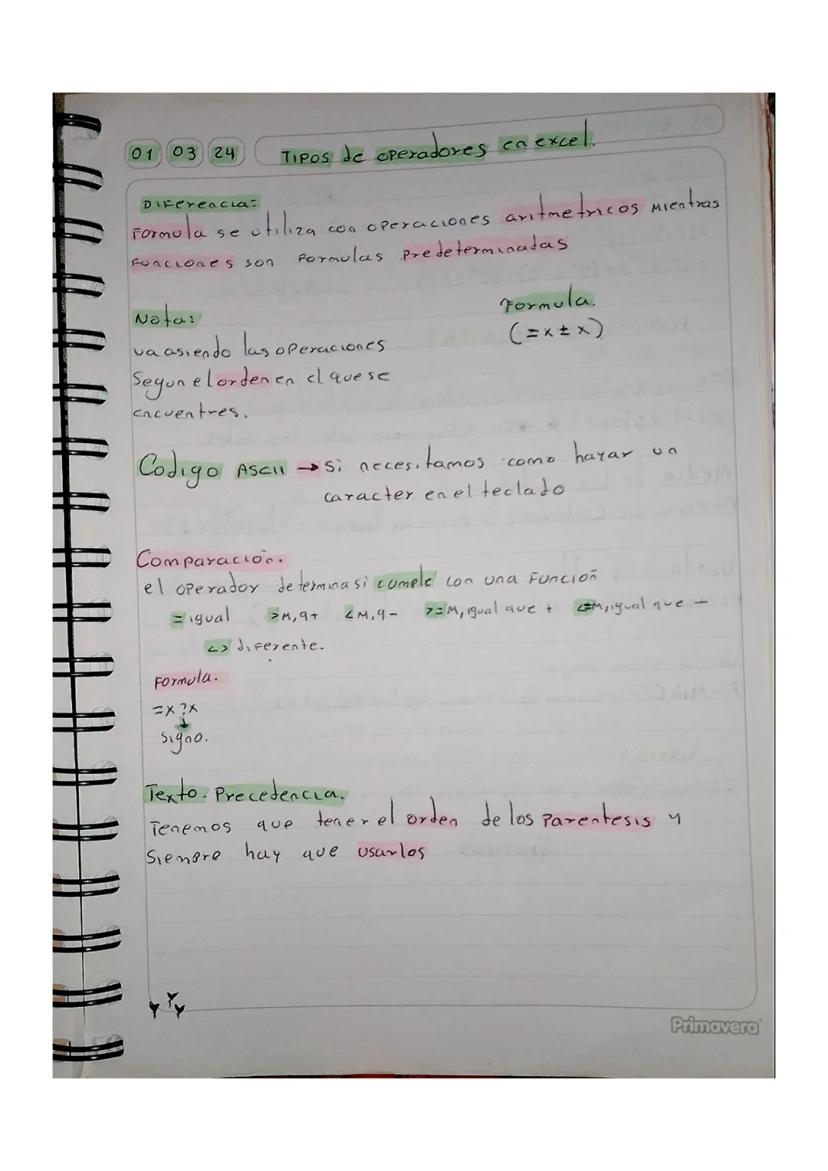 01 03 24 Tipos de operadores en excel.
Diferencia:
Formula se utiliza con operaciones aritmetricos mientras
funciones son formulas predeterminadas
Nota:
va asiendo las operaciones
Segun el orden en el que se
encuentres.
Formula.
(=x±x)
Codigo ASCII → Si necesitamos como hayar un
caracter en el teclado
Comparación.
el operador determina si cumple con una Función
= igual >M,q+ <M,q- >=M,igual que + <=M,igual que -
<> diferente.
Formula.
=x?x
↓
Signo.
Texto. Precedencia.
Tenemos que tener el orden de los parentesis y
Siempre hay que usarlos
Primavera